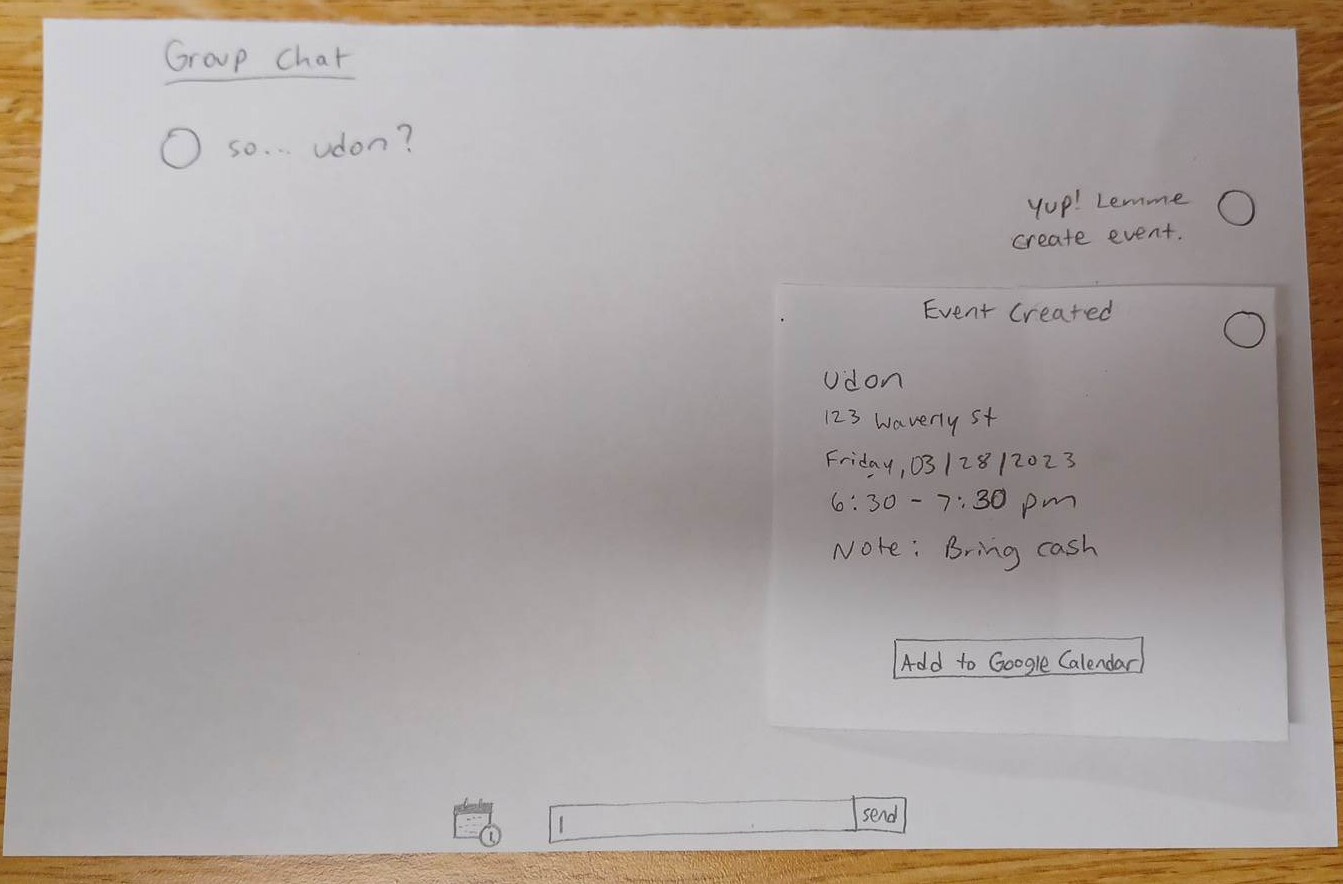 Group Chat
so... udon?
Yup! Lemme
create event.
Event Created
Udon
123 Waverly St
Friday, 03/28/2023
6:30 - 7:30 pm
Note: Bring cash
Add to Google Calendar
send